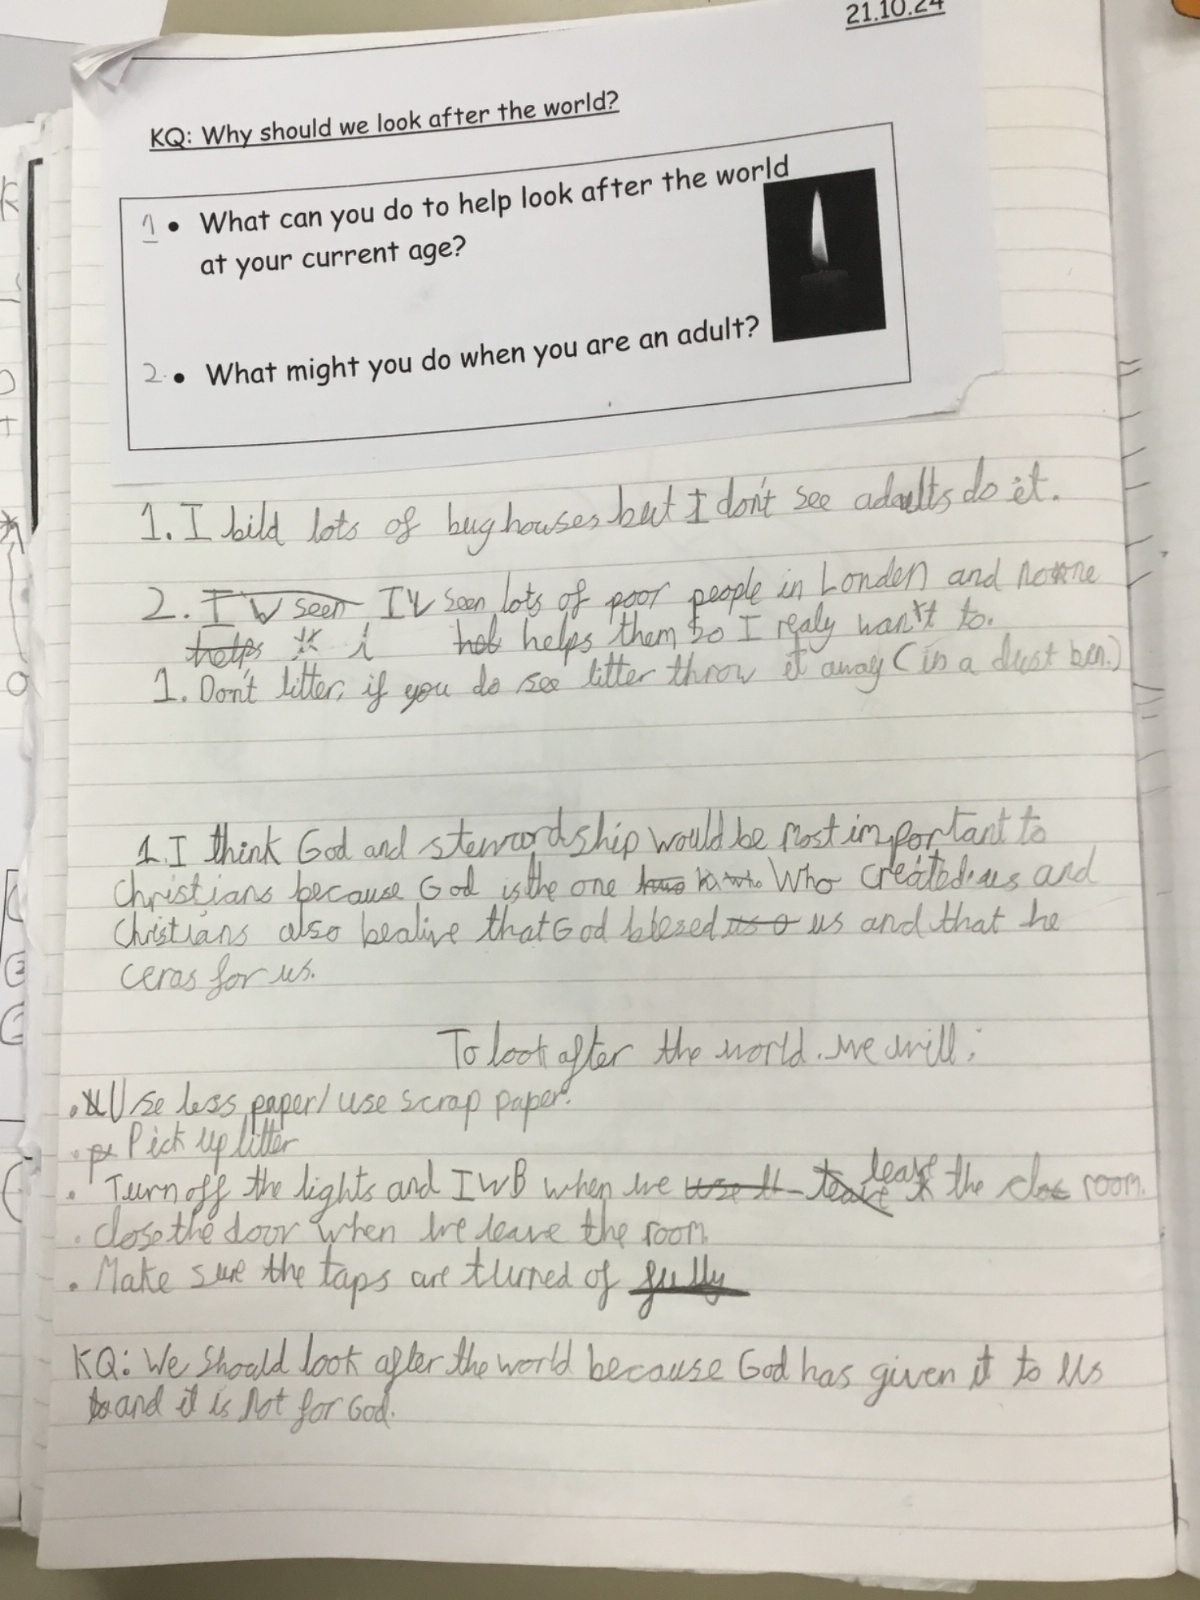 21.10.24
KQ: Why should we look after the world?
1 • What can you do to help look after the world
at your current age?
2. • What might you do when you are an adult?
1. I bild lots of bug houses but I don't see adaults do it.
2. I'v seen I'v seen lots of poor people in Londen and none
helps i hel helps them so I realy wan't to.
1. Don't litter, if you do see litter throw it away (in a dust ben.)
1. I think God and stewardship would be most important to
Christians because God is the one who Who created us and
Christians also bealive that God blesed us and that he
ceras for us.
To look after the world. we will:
• Use less paper/ use scrap paper.
• Pick up litter
• Turn off the lights and IWB when we use it leave the room.
• close the door when we leave the room.
• Make sure the taps are turned of fully
KQ: We should look after the world because God has given it to us
and it is not for God.